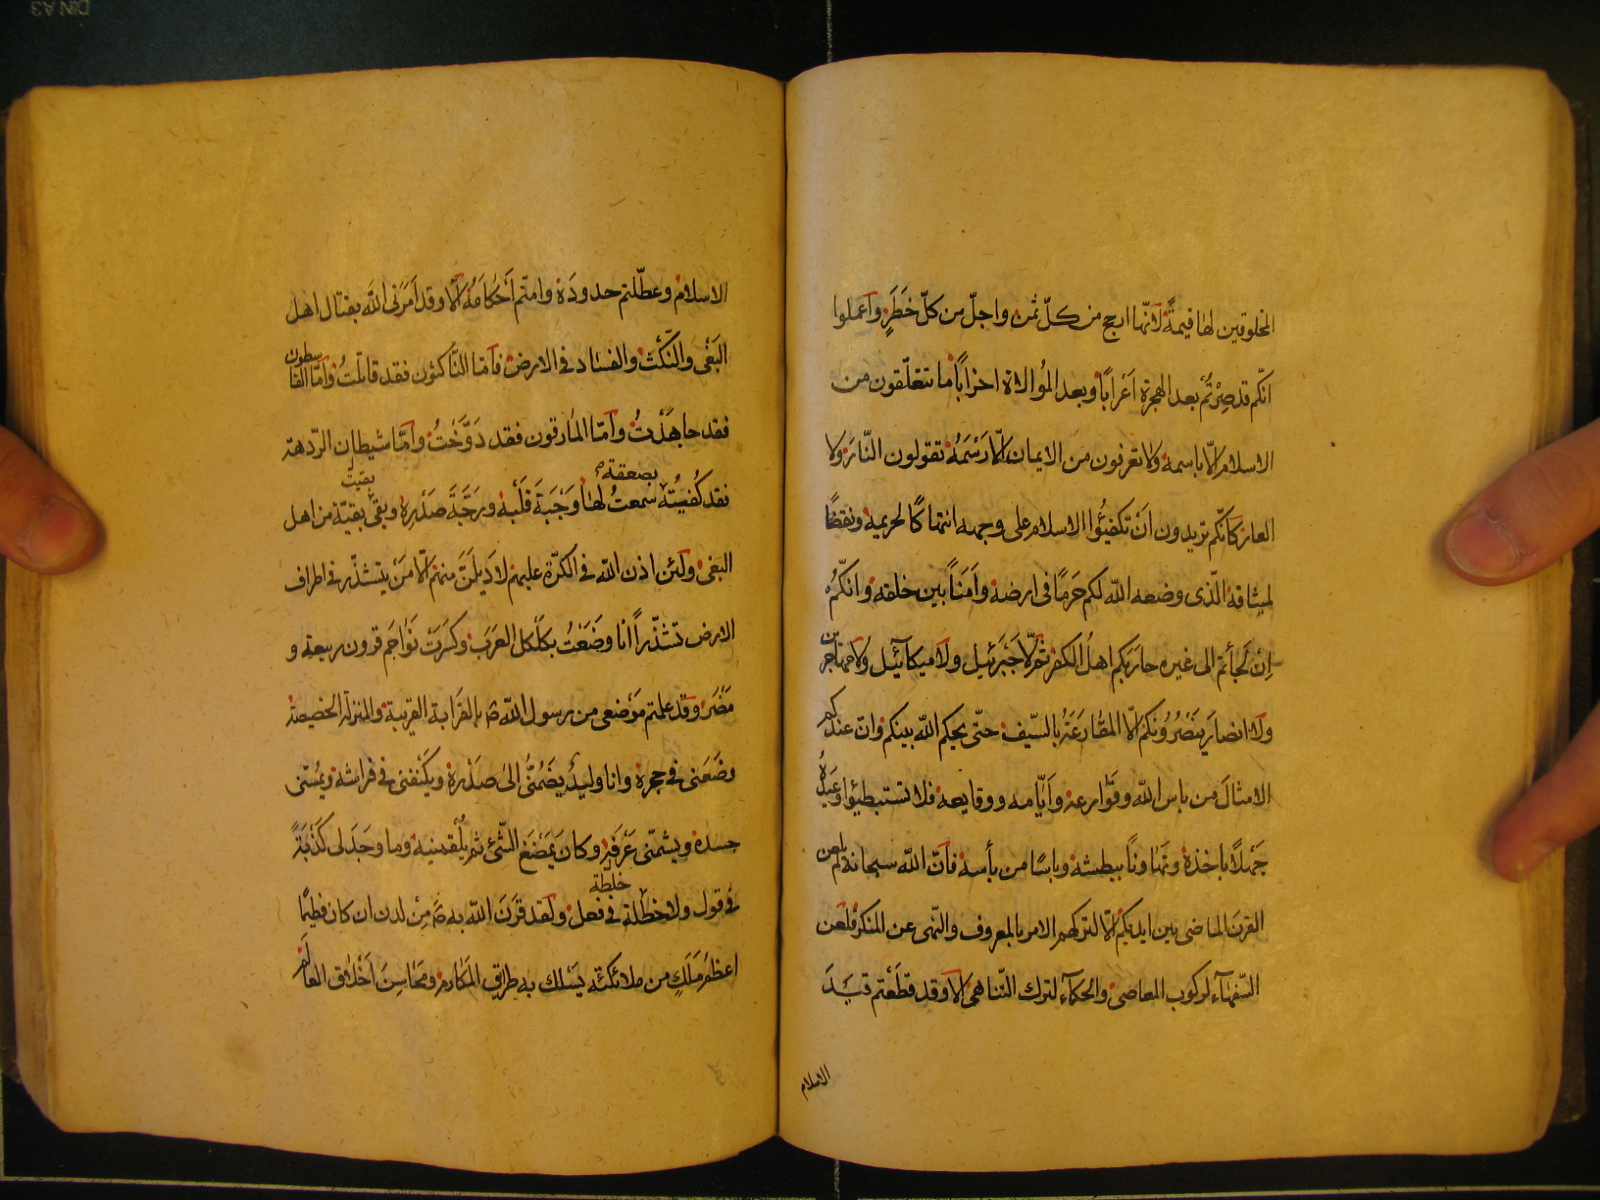 المخلوقين لها قيمةً لانّها ارجح من كلّ ثمن واجلّ من كلّ خَطَرٍ واعملوا
انّكم قد صِرْتُم بعد الهجرة اَعْراباً وبعد المُوالاة احزاباً ما تتعلّقون من
الاسلام الّا باسمه ولا تعرفون من الايمان الّا رَسْمَهُ تقولون النّارَ ولا
العار كانّكم تريدون اَنْ تكفِئُوا الاسلام على وجهه انتهاكًا لحريمه ونقضًا
لميثاقه الّذى وضعه الله لكم حَرَمًا فى ارضه واَمَناً بين خلقه وانّكم
اِنْ لَجأتم الى غيره حارَبَكم اهلُ الكفر ثم لا جَبْرَئيل ولا ميكآئيل ولا مهاجرين
ولا انصارَ يَنْصُرُونَكم الّا المقُارَعَةُ بالسّيف حتّى يحكم الله بينكم وانّ عندكم
الامثالَ من باس الله وقَوارعه واَيّامه ووقايعه فلا تستبطِئوا وَعيدَهُ
جَهْلاً باخذه وتهاوناً ببطشه وياسًا من بأسه فانّ الله سبحانه لم يلعن
القرنَ الماضى بين ايديكم الّا لتركهم الامر بالمعروف والنّهى عن المنكر فلعن
السّفهآء لركوب المعاصى والحكمآء لترك التّناهى الا وقد قطَعْتم قيَدَ
الاسلام
الاسلام وعطّلتم حدودَهُ وامتّم اَحْكامَهُ اَلا وقد اَمَرَنى الله بقتال اهل
البَغْى والنّكْث والفساد فى الارض فأمّا النّاكثون فقد قاتلتُ وامّا القاسطون
فقد جاهَدْتُ وامّا المارقون فقد دَوَّخْتُ وامّا شيطان الرّدهة
فقد كُفيتُه بصعقة سُمعتْ لها وَجْبَةَ قَلْبه ورَجَّةَ صَدْرِهِ وبقى بقيت بقيّة من اهل
البغى ولَئن اذن الله فى الكَرّة عليهم لاَديلَنَّ منهم الّا مَنْ يتشذّر فى اطراف
الارض تَشذُّراً انا وَضَعْتُ بكَلْكَل العرَبَ وكسَرْتُ نَواجمَ قرون ربيعة و
مُضَر وقد علمتم مَوْضعى من رسول الله ص بالقَرابة القريبة والمنزلة الخصيصة
وضَعَنى فى حجره وانا وليدٌ يَضُمُّنى الىٰ صَدْرِهِ ويَكْنُفنى فى فراشه ويُمسّنى
جسده ويشمّنى عَرْفَهُ وكان يَمْضَغ الشّئ ثم يُلْقمنيه وما وجَدَ لى كَذْبَةً
فى قول ولا خطلة خلطة فى فعل ولقد قرَنَ الله به ص مِنْ لدن ان كان فطيمًا
اعظمَ مَلَكٍ من ملائكته يَسْلك به طريق المَكارم ومحاسِنَ اَخْلاق العالَم